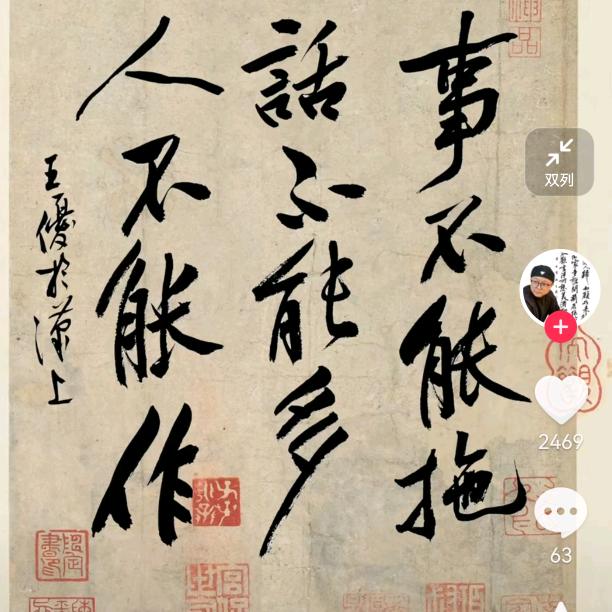 事不能拖
話不能多
人不能作
王優於漢上
双列
2469
63